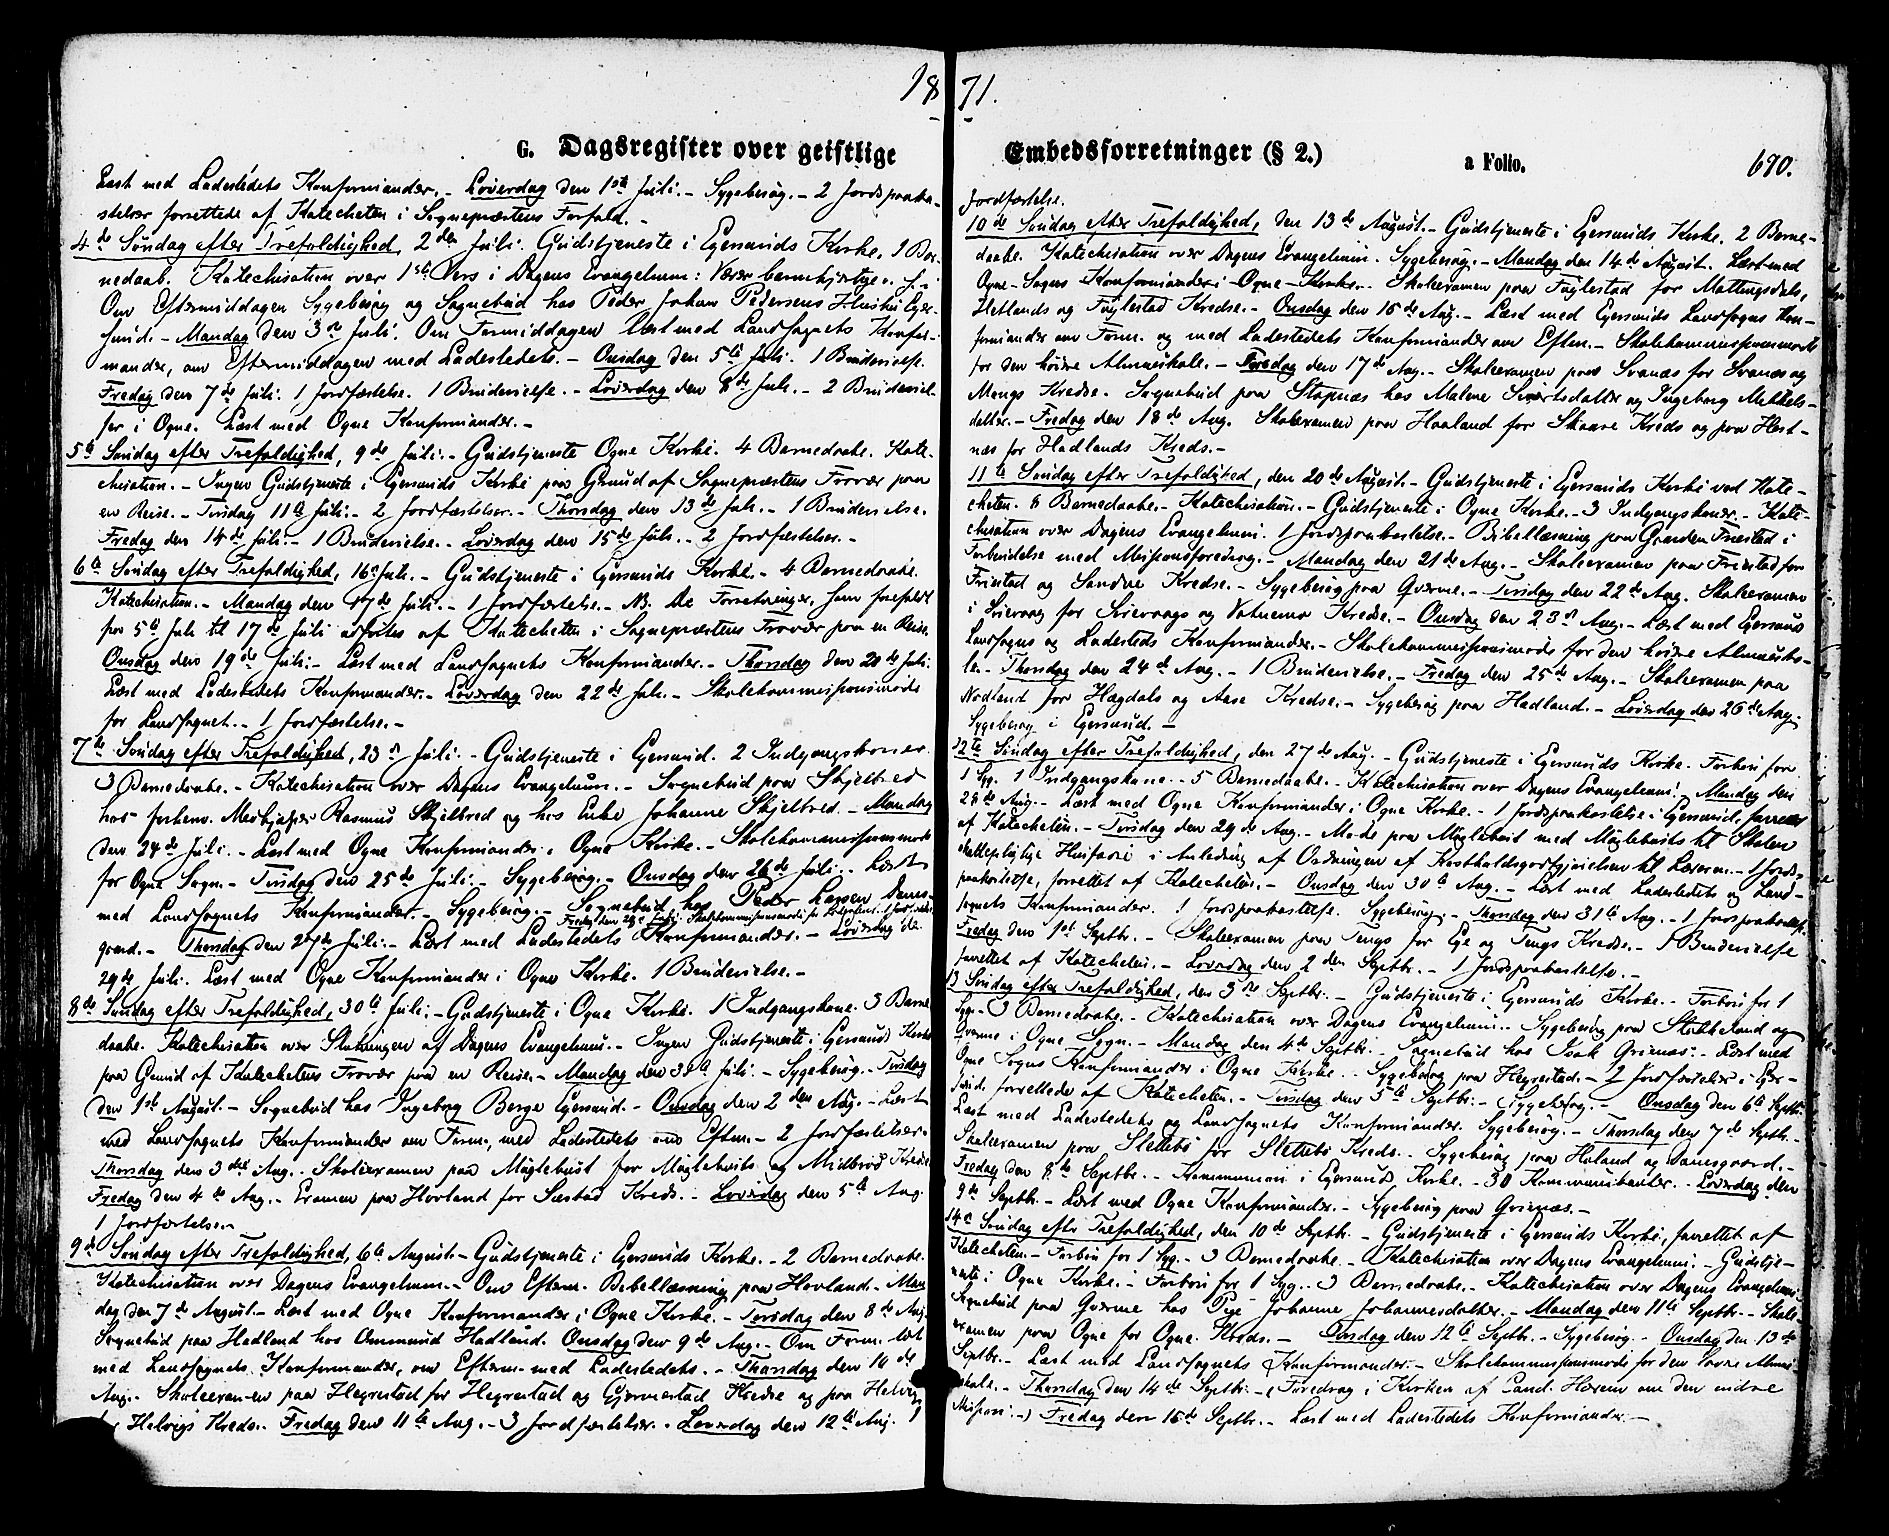 1871.
G. Dagsregister over geistlige Embedsforretninger (§ 2.) a Folio. 690.
Læst med Ladestedets Konfirmander. - Løverdag den 1ste Juli. - Sygebesøg. - 2 Jordspaaka-
stelser forrettede af Katecheten i Sognepræstens Forfald. -
4de Søndag efter Trefoldighed, 2den Juli. Gudstjeneste i Egersunds Kirke. 1 Bar-
nedaab. Katechisation over 1ste Vers i Dagens Evangelium: Værer barmhjertige o. s. v.
Om Eftermiddagen Sygebesøg og Sognebud hos Peder Johan Pedersens Hustru Eger-
sund. - Mandag den 3die Juli. Om Formiddagen Læst med Landsognets Konfir-
mander, om Eftermiddagen med Ladestedets. - Onsdag den 5te Juli. 1 Brudevielse.
Fredag den 7de Juli. 1 Jordfæstelse. 1 Brudevielse. - Løverdag den 8de Juli. - 2 Brudeviel-
ser i Ogne. Læst med Ogne Konfirmander. -
5te Søndag efter Trefoldighed, 9de Juli. - Gudstjeneste Ogne Kirke. 4 Barnedaabe. Kate-
chisation. - Ingen Gudstjeneste i Egersunds Kirke paa Grund af Sognepræstens Fravær paa
en Reise. - Tirsdag 11te Juli. - 2 Jordfæstelser. - Thorsdag den 13de Juli. - 1 Brudevielse.
Fredag den 14de Juli. - 1 Brudevielse. - Løverdag den 15de Juli. - 2 Jordfæstelser. -
6te Søndag efter Trefoldighed, 16 Juli. - Gudstjeneste i Egersunds Kirke. - 4 Barnedaabe.
Katechisation. - Mandag den 17de Juli. - 1 Jordfæstelse. - NB. De Forretninger, som forefaldt
fra 5te Juli til 17de Juli udførtes af Katecheten i Sognepræstens Fravær paa en Reise.
Onsdag den 19de Juli. - Læst med Landsognets Konfirmander. - Thorsdag den 20de Juli.
Læst med Ladestedets Konfirmander. - Løverdag den 22de Juli. - Skolekommissionsmøde
for Landsognet. - 1 Jordfæstelse. -
7de Søndag efter Trefoldighed, 23 Juli. - Gudstjeneste i Egersund. 2 Indgangskoner.
3 Barnedaabe. - Katechisation over Dagens Evangelium. - Sognebud paa Skjelbred
hos forhenv. Medhjælper Rasmus Skjelbred og hos Enke Johanne Skjelbred. - Mandag
den 24de Juli. - Læst med Ogne Konfirmander i Ogne Kirke. - Skolekommissionsmøde
for Ogne Sogn. - Tirsdag den 25de Juli. - Sygebesøg. - Onsdag den 26de Juli. - Læst
med Landsognets Konfirmander. - Sygebesøg. - Sognebud hos Peder Larsen Dams-
gaard. - Thorsdag den 27de Juli. - Læst med Ladestedets Konfirmander. - Løverdag den
29de Juli. Læst med Ogne Konfirmander i Ogne Kirke. 1 Brudevielse. -
8de Søndag efter Trefoldighed, 30te Juli. - Gudstjeneste i Ogne Kirke. 1 Indgangskone. 3 Barne-
daabe. Katechisation over Slutningen af Dagens Evangelium. - Ingen Gudstjeneste i Egersunds Kirke
paa Grund af Katechetens Fravær paa en Reise. - Mandag den 31te Juli. - Sygebesøg. - Tirsdag
den 1ste August. - Sognebud hos Ingeborg Berge Egersund. - Onsdag den 2den Aug. - Læst
med Landsognets Konfirmander om Form., med Ladestedets om Efterm. - 2 Jordfæstelser.
Thorsdag den 3die Aug. Skoleexamen paa Møglebust for Møglebusts og Midbrød Kredse
Fredag den 4de Aug. Examen paa Hovland for Sæstad Kreds. - Løverdag den 5te Aug.
1 Jordfæstelse. -
9de Søndag efter Trefoldighed, 6te August. - Gudstjeneste i Egersunds Kirke. - 2 Barnedaabe.
Katechisation over Dagens Evangelium. - Om Efterm. Bibellæsning paa Hovland. - Man-
dag den 7de August. - Læst med Ogne Konfirmander i Ogne Kirke. - Tirsdag den 8de Aug.
Sognebud paa Hadland hos Omunnd Hadland. Onsdag den 9de Aug. - Om Form. læst
med Landsognets Konfirmander, om Efterm. med Ladestedets. - Thorsdag den 10de
Aug. Skoleexamen paa Hegrestad for Hegrestad og Gjermestad Kredse og paa Helvig
for Helvigs Kreds. Fredag den 11te Aug. - 3 Jordfæstelser. - Løverdag den 12te Aug. 1
Jordfæstelse.
10de Søndag efter Trefoldighed, den 13de August. - Gudstjeneste i Egersunds Kirke. 2 Barne-
daabe. Katechisation over Dagens Evangelium. Sygebesøg. - Mandag den 14de August. Læst med
Ogne-Sogns Konfirmander i Ogne Kirke. - Skoleexamen paa Fuglestad for Mattingsdals,
Hetlands og Fuglestad Kredse. - Onsdag den 16de Aug. - Læst med Egersunds Landsogns Kon-
firmander om Form. og med Ladestedets Konfirmander om Eftm. - Skolekommissionsmøde
for den høiere Almueskole. - Torsdag den 17de Aug. - Skoleexamen paa Svanæs for Svanæs og
Mongs Kredse. Sognebud paa Stapnæs hos Malene Sivertsdatter og Ingeborg Mikkels-
datter. - Fredag den 18de Aug. Skoleexamen paa Haaland for Skaare Kreds og paa Hest-
næs for Hadlands Kreds. -
11te Søndag efter Trefoldighed, den 20de August. - Gudstjeneste i Egersunds Kirke ved Kate-
cheten. 8 Barnedaabe. - Katechisation. - Gudstjeneste i Ogne Kirke. - 3 Indgangskoner. - Kate-
chisation over Dagens Evangelium. 1 Jordspaakastelse. - Bibellæsning paa Gaarden Friestad i
Forbindelse med Missionsforedrag. - Mandag den 21de Aug. - Skoleexamen paa Friestad for
Friestad og Sandve Kredse. - Sygebesøg paa Gværne. - Tirsdag den 22de Aug. Skoleexamen
i Sirevaag for Sirevaags og Vatnemo Kredse. - Onsdag den 23de Aug. - Læst med Egersund
Landsogns og Ladesteds Konfirmander. - Skolekommissionsmøde for den høiere Almuesko-
le. - Thorsdag den 24de Aug. - 1 Brudevielse. - Fredag den 25de Aug. - Skoleexamen paa
Nodland for Hægdals og Aase Kredse. - Sygebesøg paa Hadland. - Løverdag den 26de Aug.
Sygebesøg i Egersund. -
12te Søndag efter Trefoldighed, den 27de Aug. - Gudstjeneste i Egersunds Kirke. Forbøn for
1 Syg. 1 Indgangskone. - 5 Barnedaabe. - Katechisation over Dagens Evangelium. - Mandag den
28de Aug. - Læst med Ogne Konfirmander i Ogne Kirke. - 1 Jordspaakastelse i Egersund, forrettet
af Katecheten. - Tirsdag den 29de Aug. - Møde paa Møglebust med Møglebusts til Skolen
skattepligtige Husfædre i Anledning af Ordningen af Kostholdsgodtgjørelsen til Læreren. - 1 Jords-
paakastelse, forrettet af Katecheten. - Onsdag den 30te Aug. - Læst med Ladestedets og Land-
sognets Konfirmander. 1 Jordspaakastelse. Sygebesøg. - Thorsdag den 31te Aug. - 1 Jordspaakastelse.
Fredag den 1ste Septbr. - Skoleexamen paa Tengs for Eie og Tengs Kredse. - 1 Brudevielse
forrettet af Katecheten. - Løverdag den 2den Septbr. - 1 Jordspaakastelse. -
13 Søndag efter Trefoldighed, den 3die Septbr. - Gudstjeneste i Egersunds Kirke. - Forbøn for 1
Syg. - 3 Barnedaabe. - Katechisation over Dagens Evangelium. - Sygebesøg paa Stokkeland og
Gværne i Ogne Sogn. - Mandag den 4de Septbr. - Sognebud hos Isak Grisnæs. - Læst med
Ogne Sogns Konfirmander i Ogne Kirke. - Sygebesøg paa Hegrestad. - 2 Jordfæstelser i Eger-
sund, forrettede af Katecheten. - Tirsdag den 5te Septbr. - Sygebesøg. - Onsdag den 6te Septbr.
Læst med Ladestedets og Landsognets Konfirmander. Sygebesøg. - Thorsdag den 7de Septbr. -
Skoleexamen paa Slettebø for Slettebø Kreds. - Sygebesøg paa Huland og Damsgaard. -
Fredag den 8de Septbr. - Kommunion i Egersunds Kirke. - 30 Kommunikanter. - Løverdag den
9de Septbr. - Læst med Ogne Konfirmander. - Sygebesøg paa Grisnæs. -
14de Søndag efter Trefoldighed, den 10de Septbr. - Gudstjeneste i Egersunds Kirke, forrettet af
Katecheten. - Forbøn for 1 Syg. - 3 Barnedaabe. - Katechisation over Dagens Evangelium. - Gudstje-
neste i Ogne Kirke. - Forbøn for 1 Syg. - 3 Barnedaabe. - Katechisation over Dagens Evangelium.
Sognebud paa Gværne hos Pige Johanne Johannesdatter. - Mandag den 11te Septbr. - Skole-
examen paa Ogne for Ogne Kreds. - Tirsdag den 12te Septbr. - Sygebesøg. - Onsdag den 13de
Septbr. - Læst med Landsognets Konfirmander. - Skolekommissionsmøde for den høiere Almue-
skole. - Thorsdag den 14de Septbr. - (Foredrag i Kirken af Cand. Hærem om den indre
Mission. -) Fredag den 15de Septbr. - Læst med Ladestedets Konfirmander. -